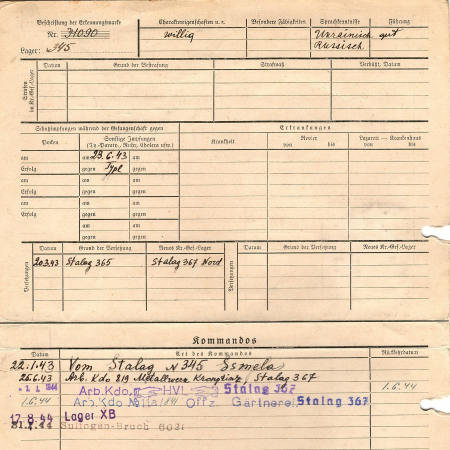 Beschriftung der Erkennungsmarke
Nr. 31090
Lager: 345
Charaktereigenschaften u. s.
willig
Besondere Fähigkeiten
Sprachkenntnisse
Ukrainisch
Russisch
Führung
gut
Strafen im Kr.-Gef.-Lager
Datum Grund der Bestrafung Strafmaß Verbüßt, Datum
Schutzimpfungen während der Gefangenschaft gegen
Pocken
Sonstige Impfungen
(Ty.-Paraty., Ruhr, Cholera usw.)
am am 23.6.43
Erfolg gegen Typh
am am
Erfolg gegen
am am
Erfolg gegen
am am
Erfolg gegen
Erkrankungen
Krankheit Revier von bis Lazarett — Krankenhaus von bis
Versetzungen
Datum Grund der Versetzung Neues Kr.-Gef.-Lager
20.3.43 Stalag 365 Stalag 367 Nord
Versetzungen
Datum Grund der Versetzung Neues Kr.-Gef.-Lager
Kommandos
Datum Art des Kommandos Rückkehrdatum
22.1.43 Vom Stalag N 345 Ssmela
26.6.43 Arb. Kdo 219 Metallwerk Stalag 367
1944 Arb.Kdo. HVL Stalag 367 1.6.44
1.6.44 Arb.Kdo Offz. Gärtnerei Stalag 367
17.8.44 Lager XB
44 Sulingen-Bruch 603